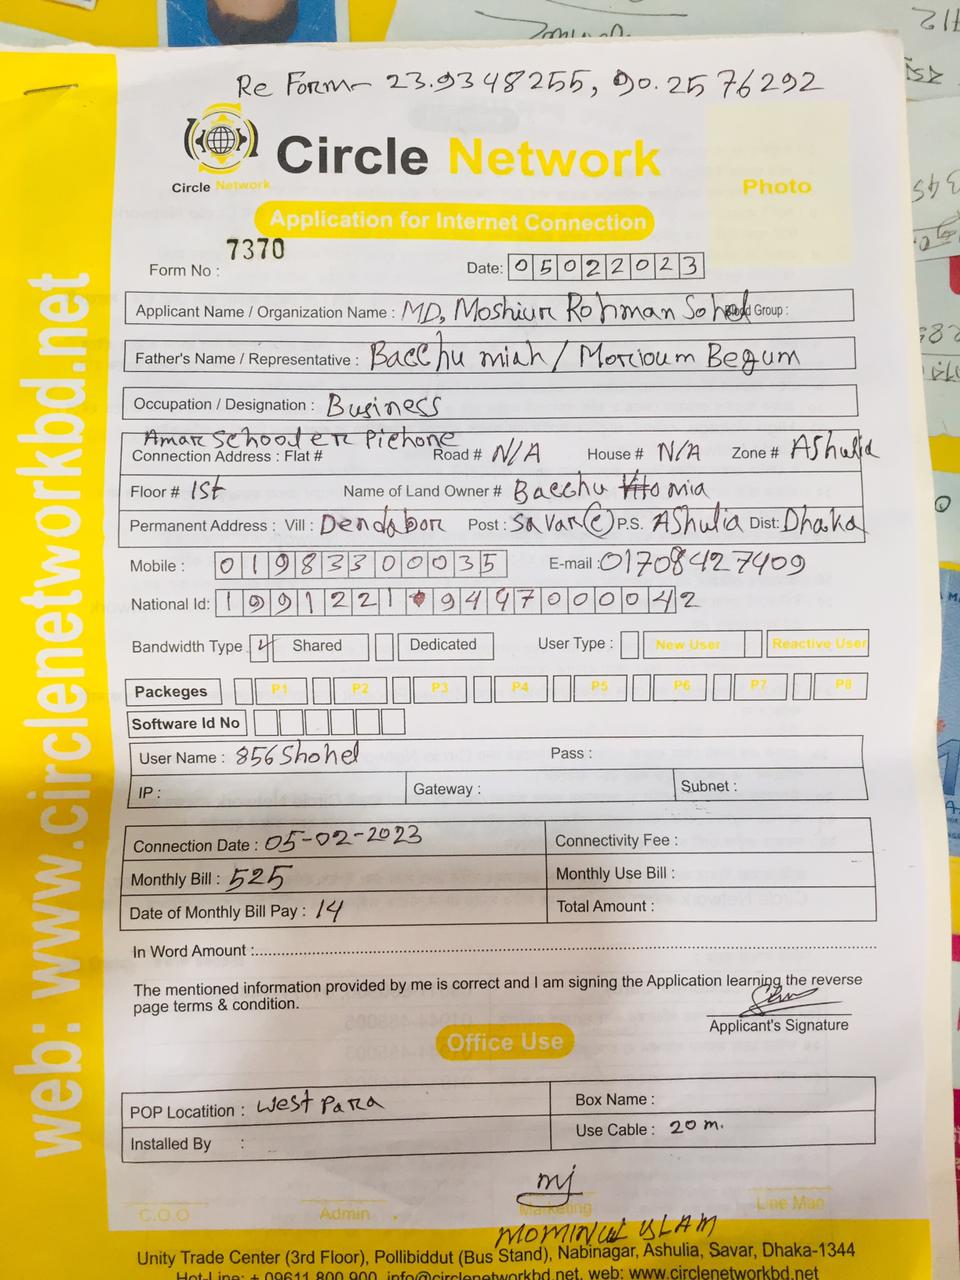 Re Form 23.9348255, 90.2576292
Circle Network
Circle Network
Photo
Application for Internet Connection
7370
Form No :
Date: 05022023
Applicant Name / Organization Name : MD, Moshiur Rohman Sohel Blood Group :
Father's Name / Representative : Bacchu miah / Morioum Begum
Occupation / Designation : Business
Amar Schooler Pichone
Connection Address : Flat # Road # N/A House # N/A Zone # Ashulia
Floor # 1st Name of Land Owner # Bacchu mia
Permanent Address : Vill : Dendabor Post : Savar (C) P.S. AShulia Dist: Dhaka
Mobile : 01983300035 E-mail : 01708427409
National Id: 1991221 9447000042
Bandwidth Type Shared Dedicated User Type : New User Reactive User
Packeges P1 P2 P3 P4 P5 P6 P7 P8
Software Id No
User Name : 856Shohel Pass :
IP : Gateway : Subnet :
Connection Date : 05-02-2023 Connectivity Fee :
Monthly Bill : 525 Monthly Use Bill :
Date of Monthly Bill Pay : 14 Total Amount :
In Word Amount :
The mentioned information provided by me is correct and I am signing the Application learning the reverse
page terms & condition.
Applicant's Signature
Office Use
POP Locatition : West Para Box Name :
Installed By : Use Cable : 20 m.
mj
C.O.O Admin Marketing Line Man
MOMINUL ISLAM
Unity Trade Center (3rd Floor), Pollibiddut (Bus Stand), Nabinagar, Ashulia, Savar, Dhaka-1344
Hot-Line: + 09611 800 900, info@circlenetworkbd.net, web: www.circlenetworkbd.net
web: www.circlenetworkbd.net